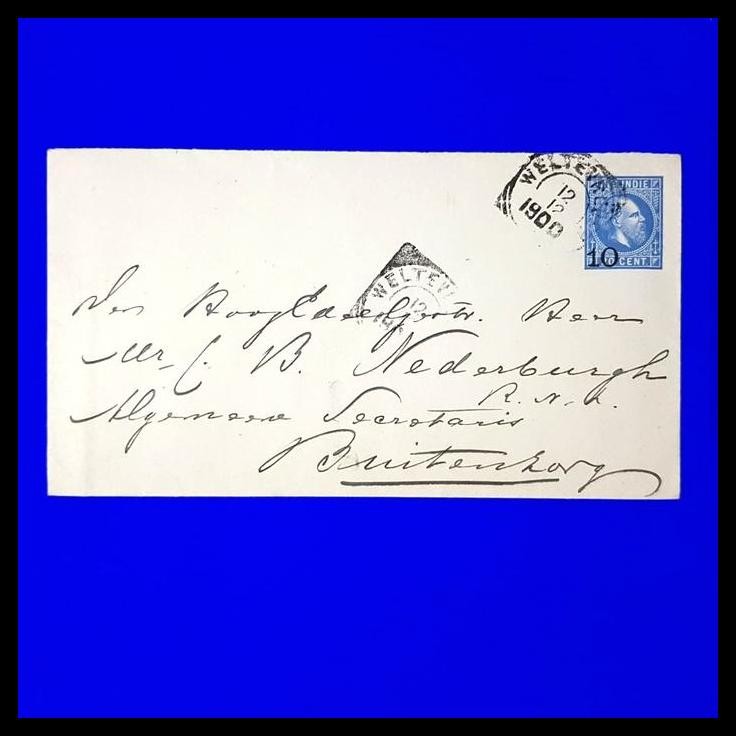 WELTEVR
12
12
1900
INDIE
10
CENT.
WELTEV
12
Den HoogEdelGestr. Heer
Mr. C. B. Nederburgh
R. N. L.
Algemeene Secretaris
Buitenzorg